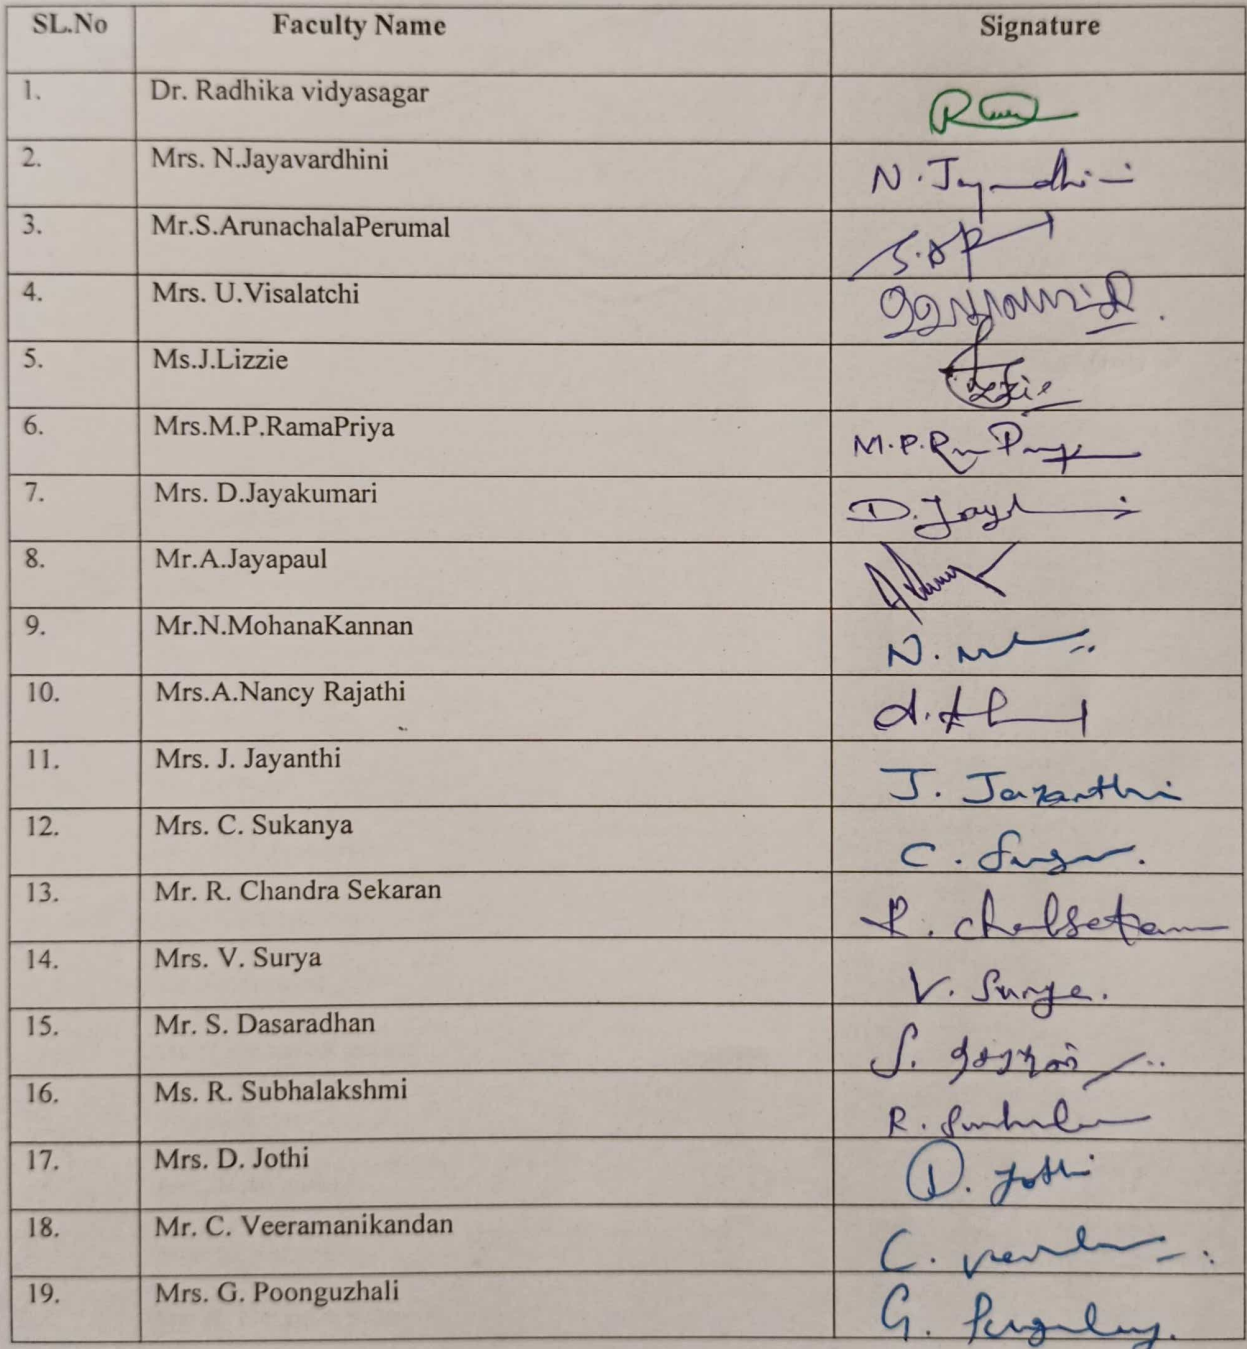 SL.No Faculty Name Signature
1. Dr. Radhika vidyasagar
2. Mrs. N.Jayavardhini N.
3. Mr.S.ArunachalaPerumal S.AP
4. Mrs. U.Visalatchi
5. Ms.J.Lizzie Lizzie
6. Mrs.M.P.RamaPriya M.P.
7. Mrs. D.Jayakumari D.
8. Mr.A.Jayapaul
9. Mr.N.MohanaKannan N.
10. Mrs.A.Nancy Rajathi
11. Mrs. J. Jayanthi J. Jayanthi
12. Mrs. C. Sukanya C.
13. Mr. R. Chandra Sekaran R.
14. Mrs. V. Surya V. Surya.
15. Mr. S. Dasaradhan S.
16. Ms. R. Subhalakshmi R.
17. Mrs. D. Jothi D. Jothi
18. Mr. C. Veeramanikandan C.
19. Mrs. G. Poonguzhali G.